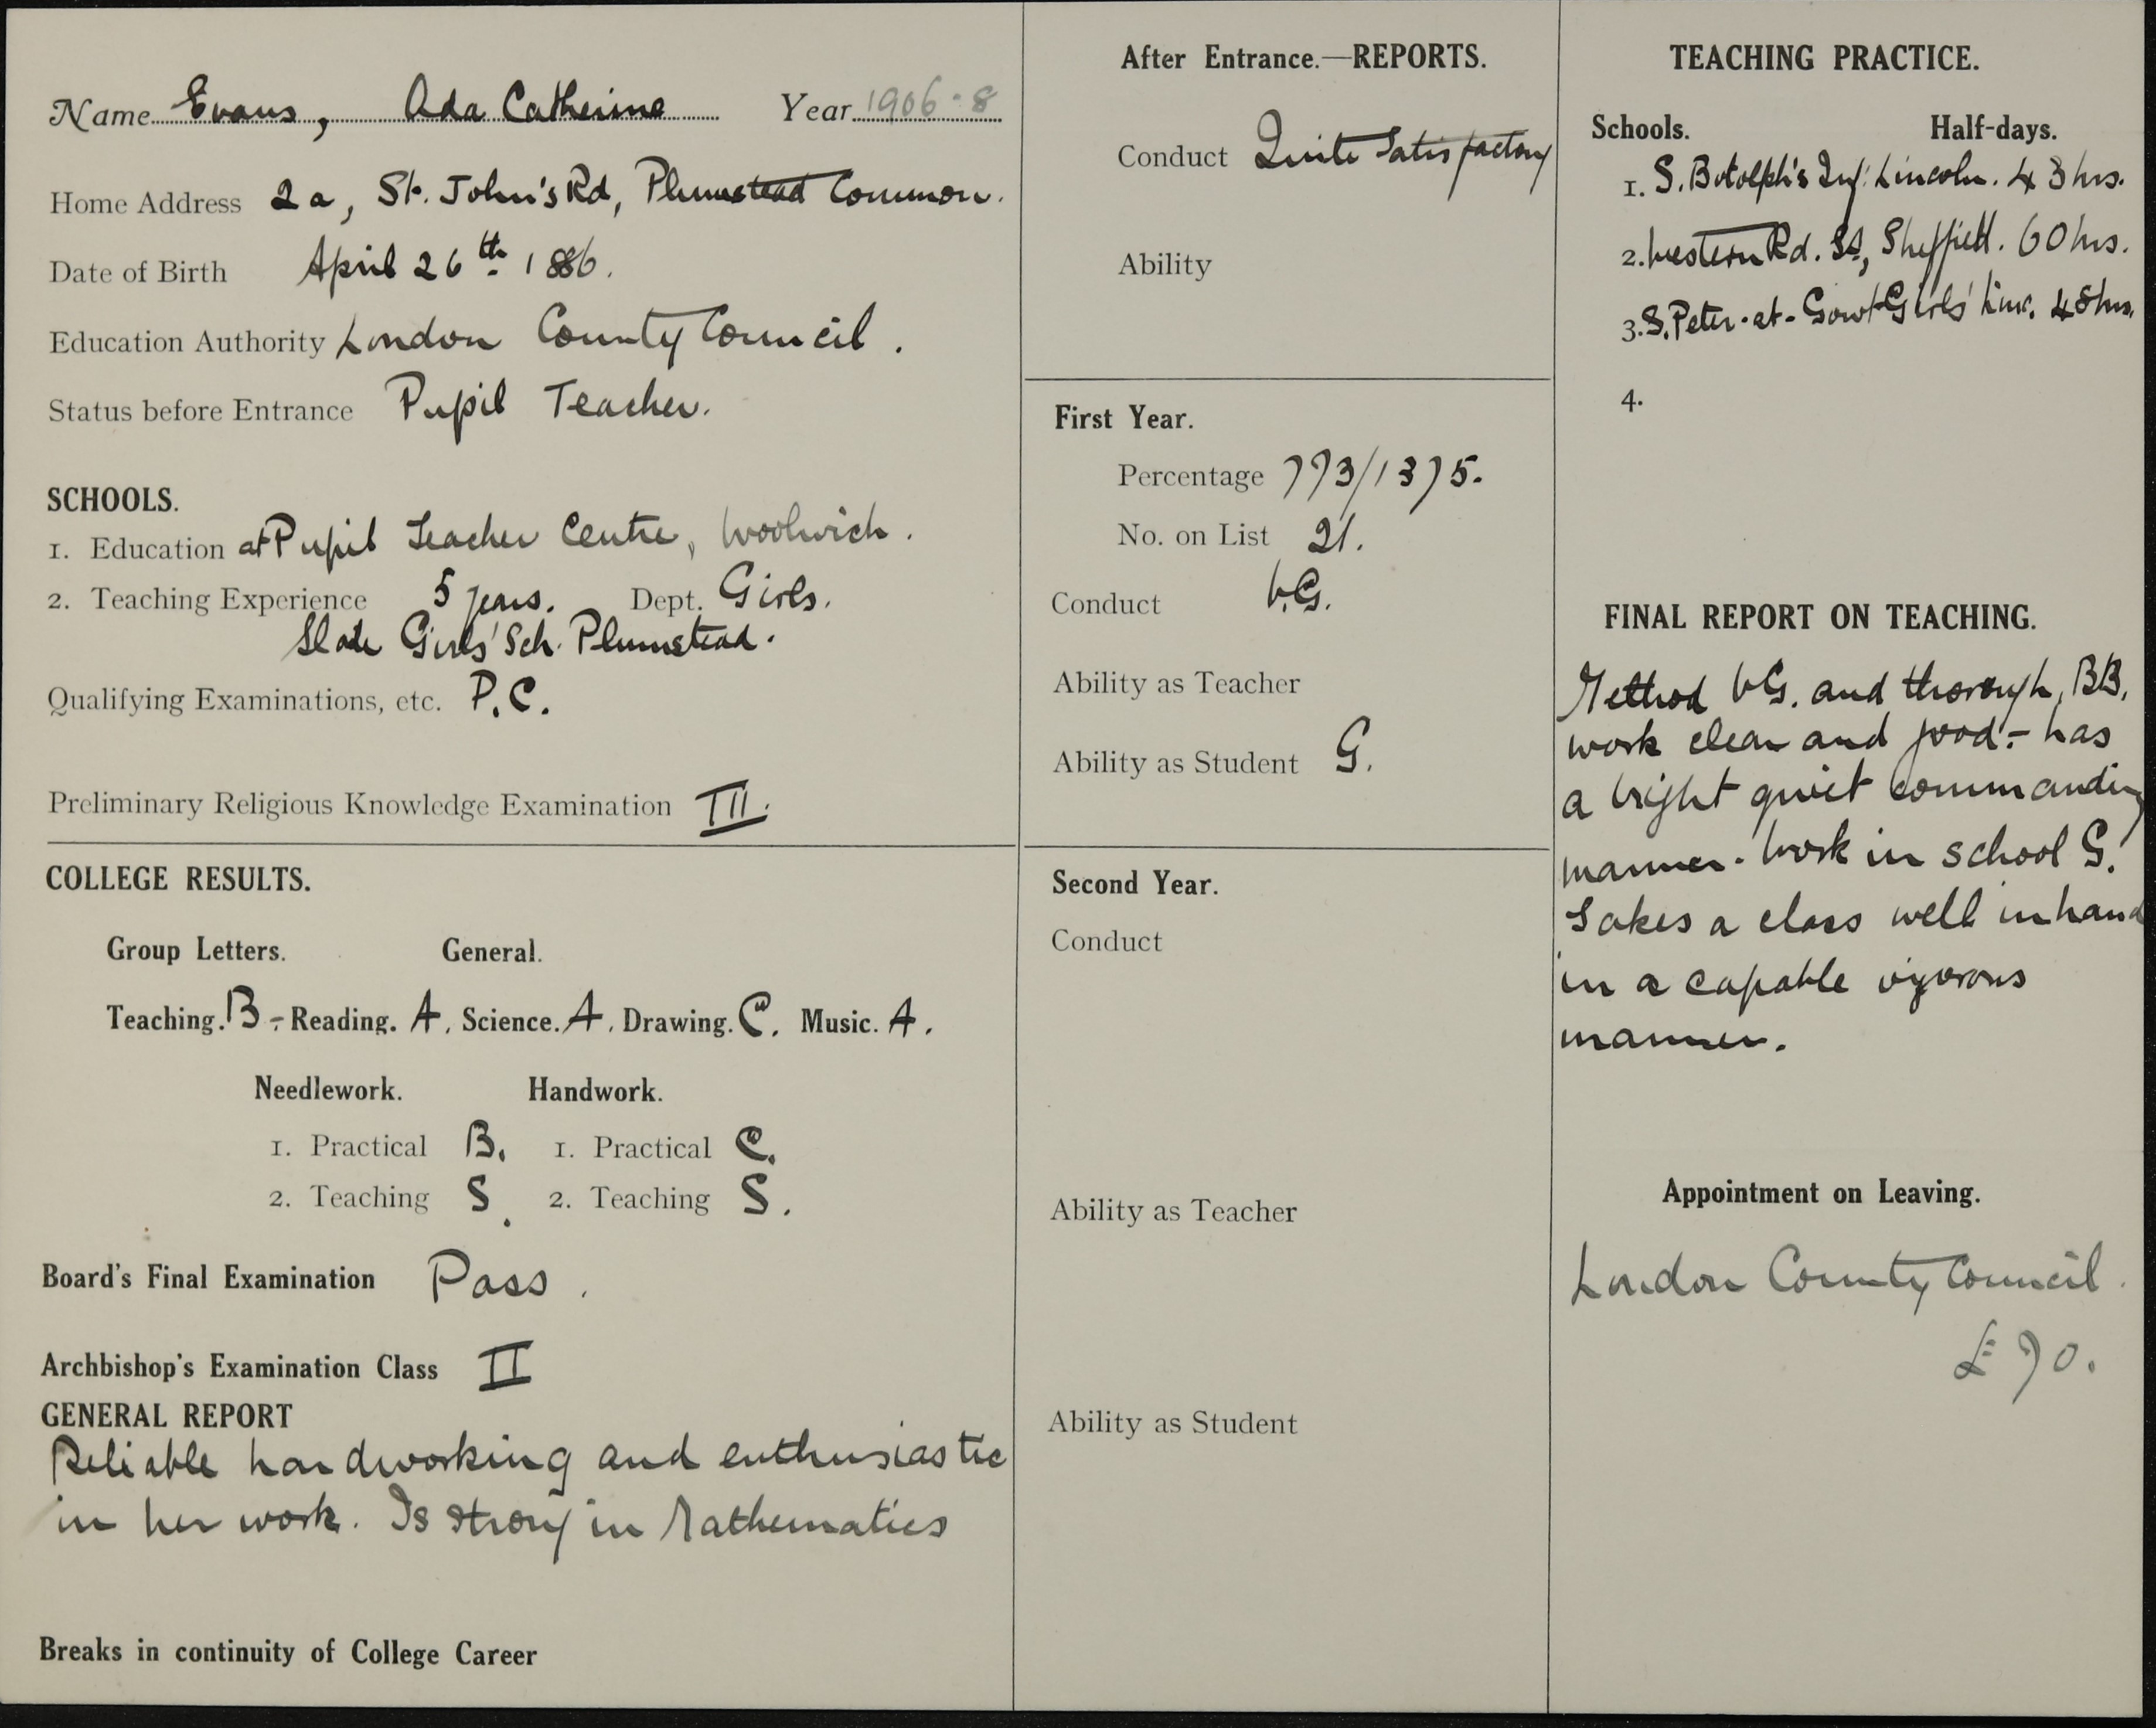 Name Evans, Ada Catherine Year 1906-8
Home Address 2a, St. John's Rd, Plumstead Common.
Date of Birth April 26th 1886.
Education Authority London County Council.
Status before Entrance Pupil Teacher.
SCHOOLS.
1. Education at Pupil Teacher Centre, Woolwich.
2. Teaching Experience 5 years. Dept. Girls.
Slade Girls' Sch. Plumstead.
Qualifying Examinations, etc. P.C.
Preliminary Religious Knowledge Examination III.
COLLEGE RESULTS.
Group Letters. General.
Teaching. B- Reading. A. Science. A. Drawing. C. Music. A.
Needlework. Handwork.
1. Practical B. 1. Practical C.
2. Teaching S. 2. Teaching S.
Board's Final Examination Pass.
Archbishop's Examination Class II
GENERAL REPORT
Reliable hardworking and enthusiastic
in her work. Is strong in Mathematics
Breaks in continuity of College Career
After Entrance.—REPORTS.
Conduct Quite satisfactory
Ability
First Year.
Percentage 773/1375.
No. on List 21.
Conduct V.G.
Ability as Teacher
Ability as Student G.
Second Year.
Conduct
Ability as Teacher
Ability as Student
TEACHING PRACTICE.
Schools. Half-days.
1. S. Botolph's Inf: Lincoln. 43 hrs.
2. Western Rd. Sheffield. 60 hrs.
3. S. Peter-at-Gowt Girls' Linc. 48 hrs.
4.
FINAL REPORT ON TEACHING.
Method VG. and thorough, BB.
work clear and good - has
a bright quiet commanding
manner. Work in school G.
Takes a class well in hand
in a capable vigorous
manner.
Appointment on Leaving.
London County Council.
£90.